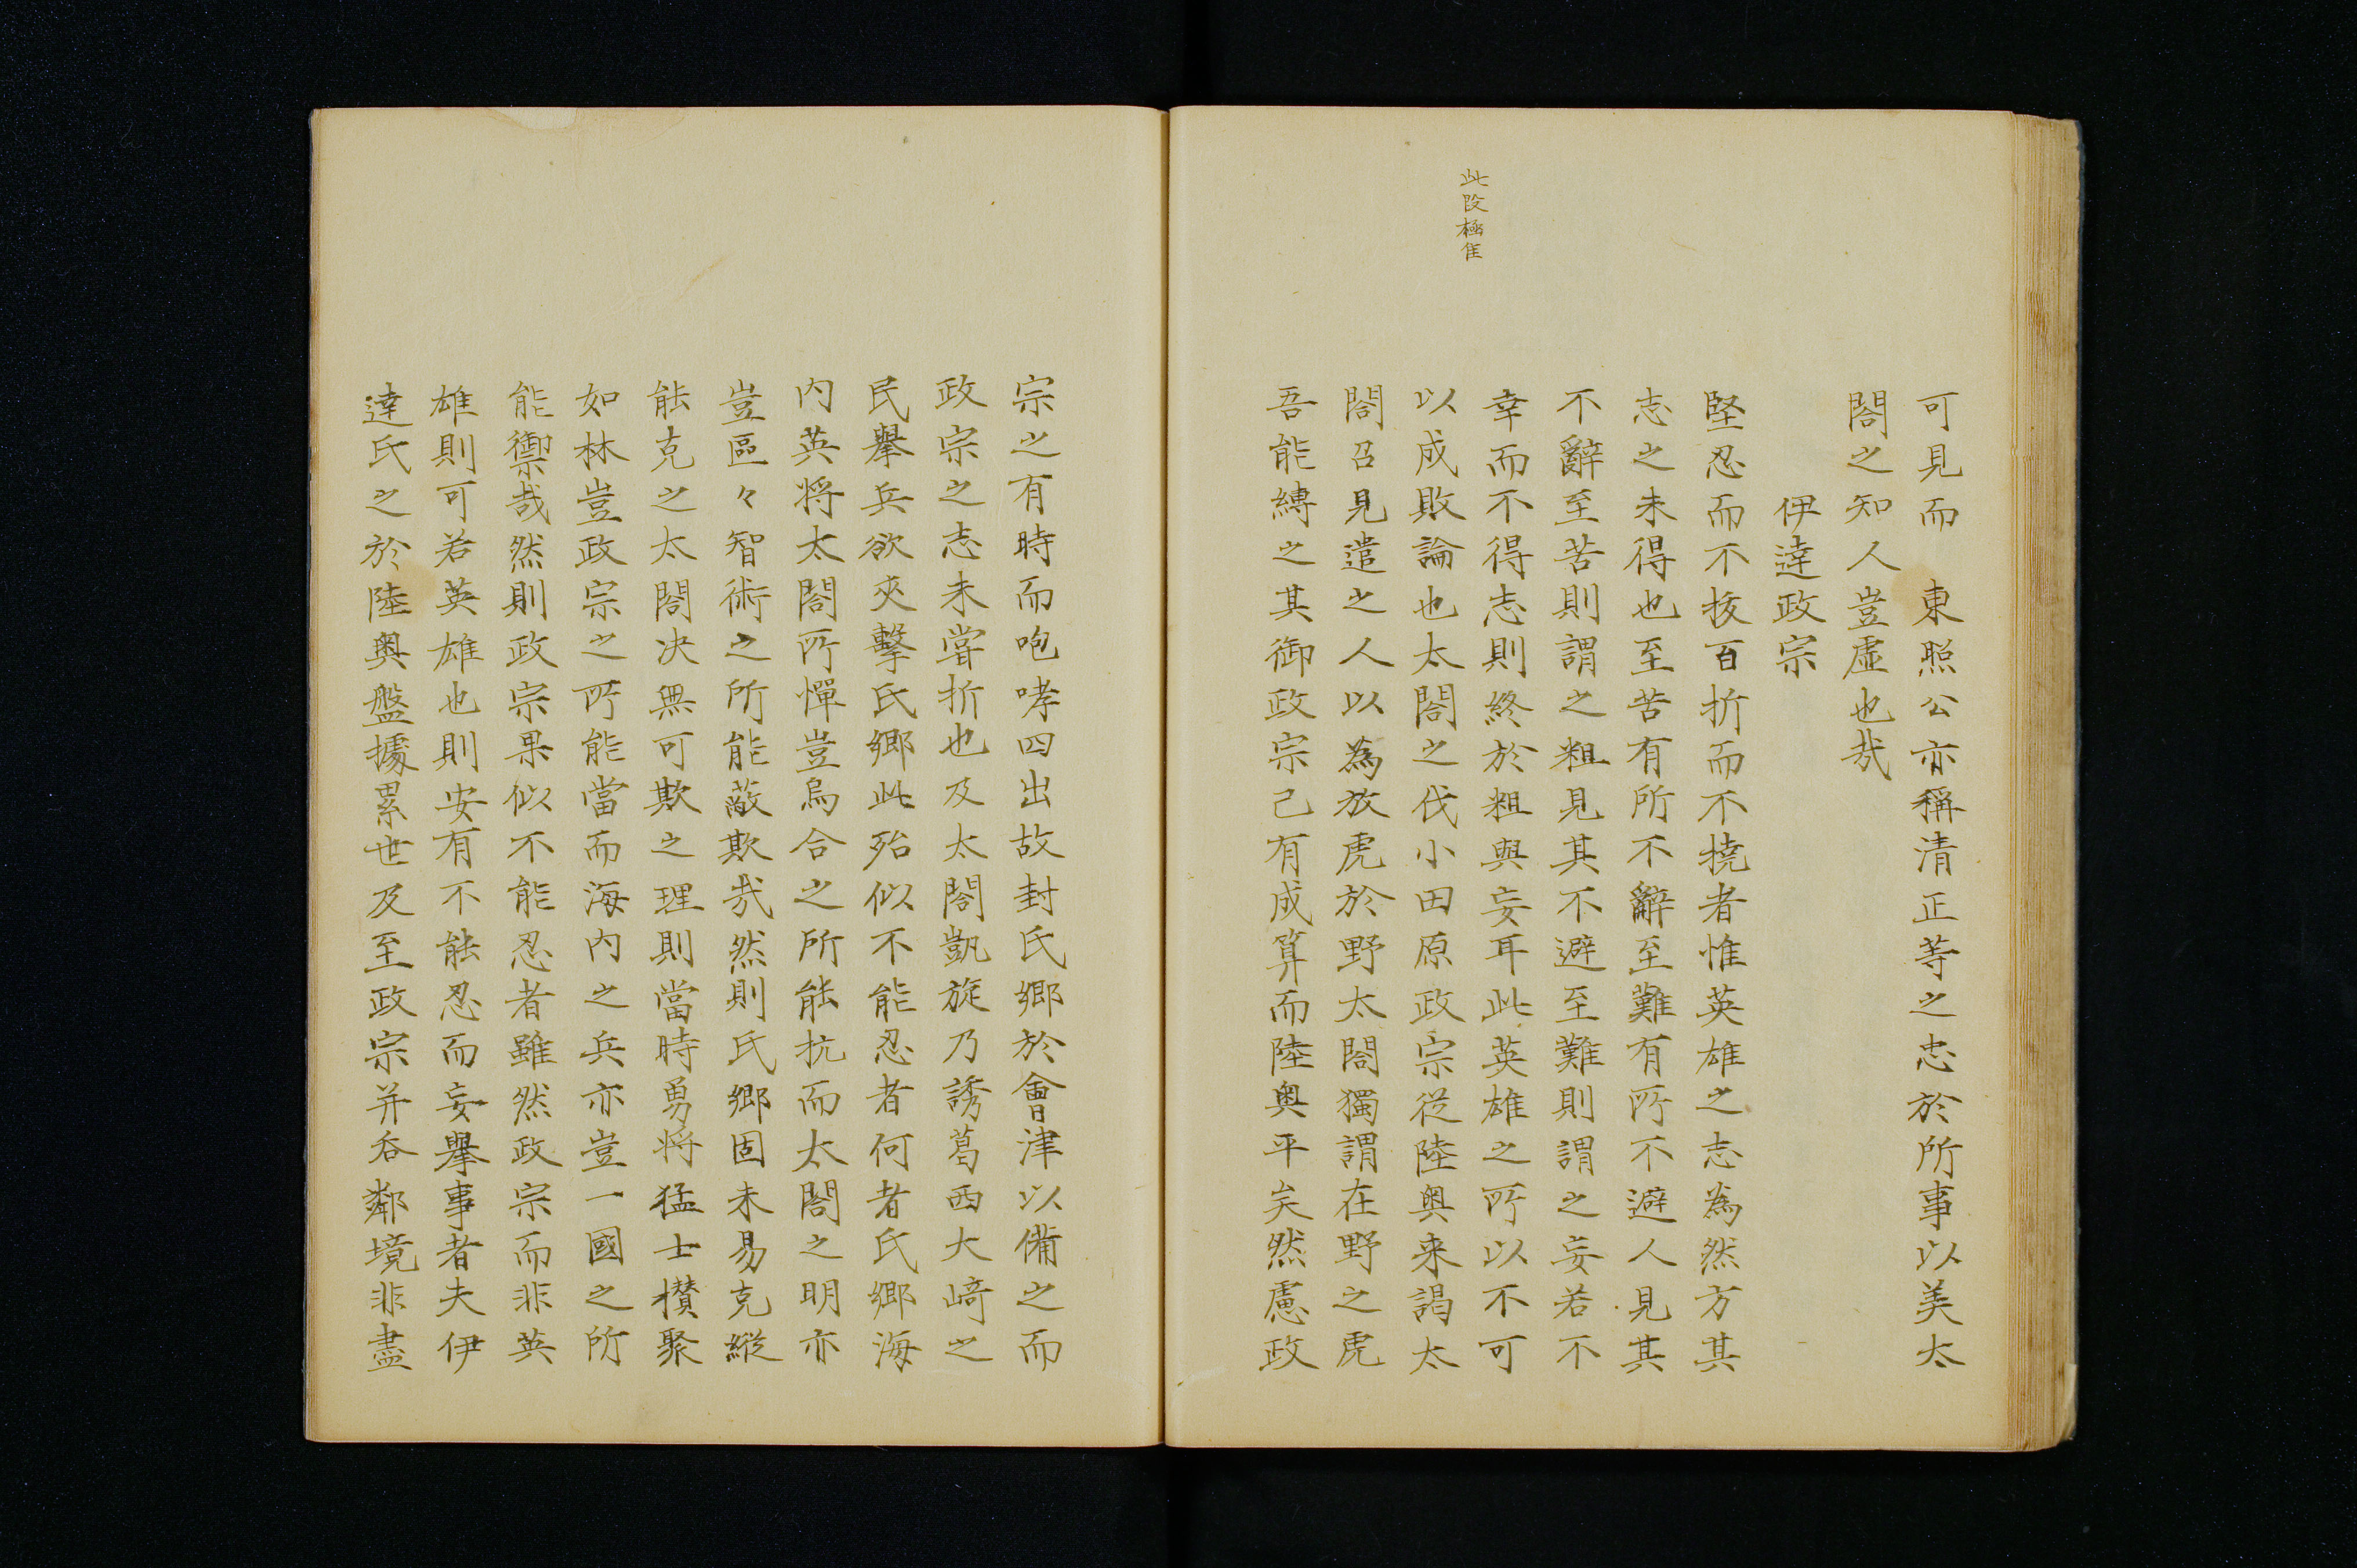 此段極隹
可見而　東照公亦稱清正等之忠於所事以美太
閤之知人豈虛也哉
伊達政宗
堅忍而不拔百折而不撓者惟英雄之志為然方其
志之未得也至苦有所不辭至難有所不避人見其
不辭至苦則謂之粗見其不避至難則謂之妄若不
幸而不得志則終於粗與妄耳此英雄之所以不可
以成敗論也太閤之伐小田原政宗從陸奧来謁太
閤召見遣之人以為放虎於野太閤獨謂在野之虎
吾能縛之其御政宗己有成算而陸奧平矣然慮政
宗之有時而咆哮四出故封氏鄉於會津以備之而
政宗之志未嘗折也及太閤凱旋乃誘葛西大﨑之
民舉兵欲夾擊氏鄉此殆似不能忍者何者氏鄉海
内英将太閤所憚豈烏合之所能抗而太閤之明亦
豈區々智術之所能蔽欺哉然則氏鄉固未易克縱
能克之太閤决無可欺之理則當時勇将猛士櫕聚
如林豈政宗之所能當而海内之兵亦豈一國之所
能禦哉然則政宗果似不能忍者雖然政宗而非英
雄則可若英雄也則安有不能忍而妄舉事者夫伊
達氏之於陸奧盤據累世及至政宗并吞鄰境非盡